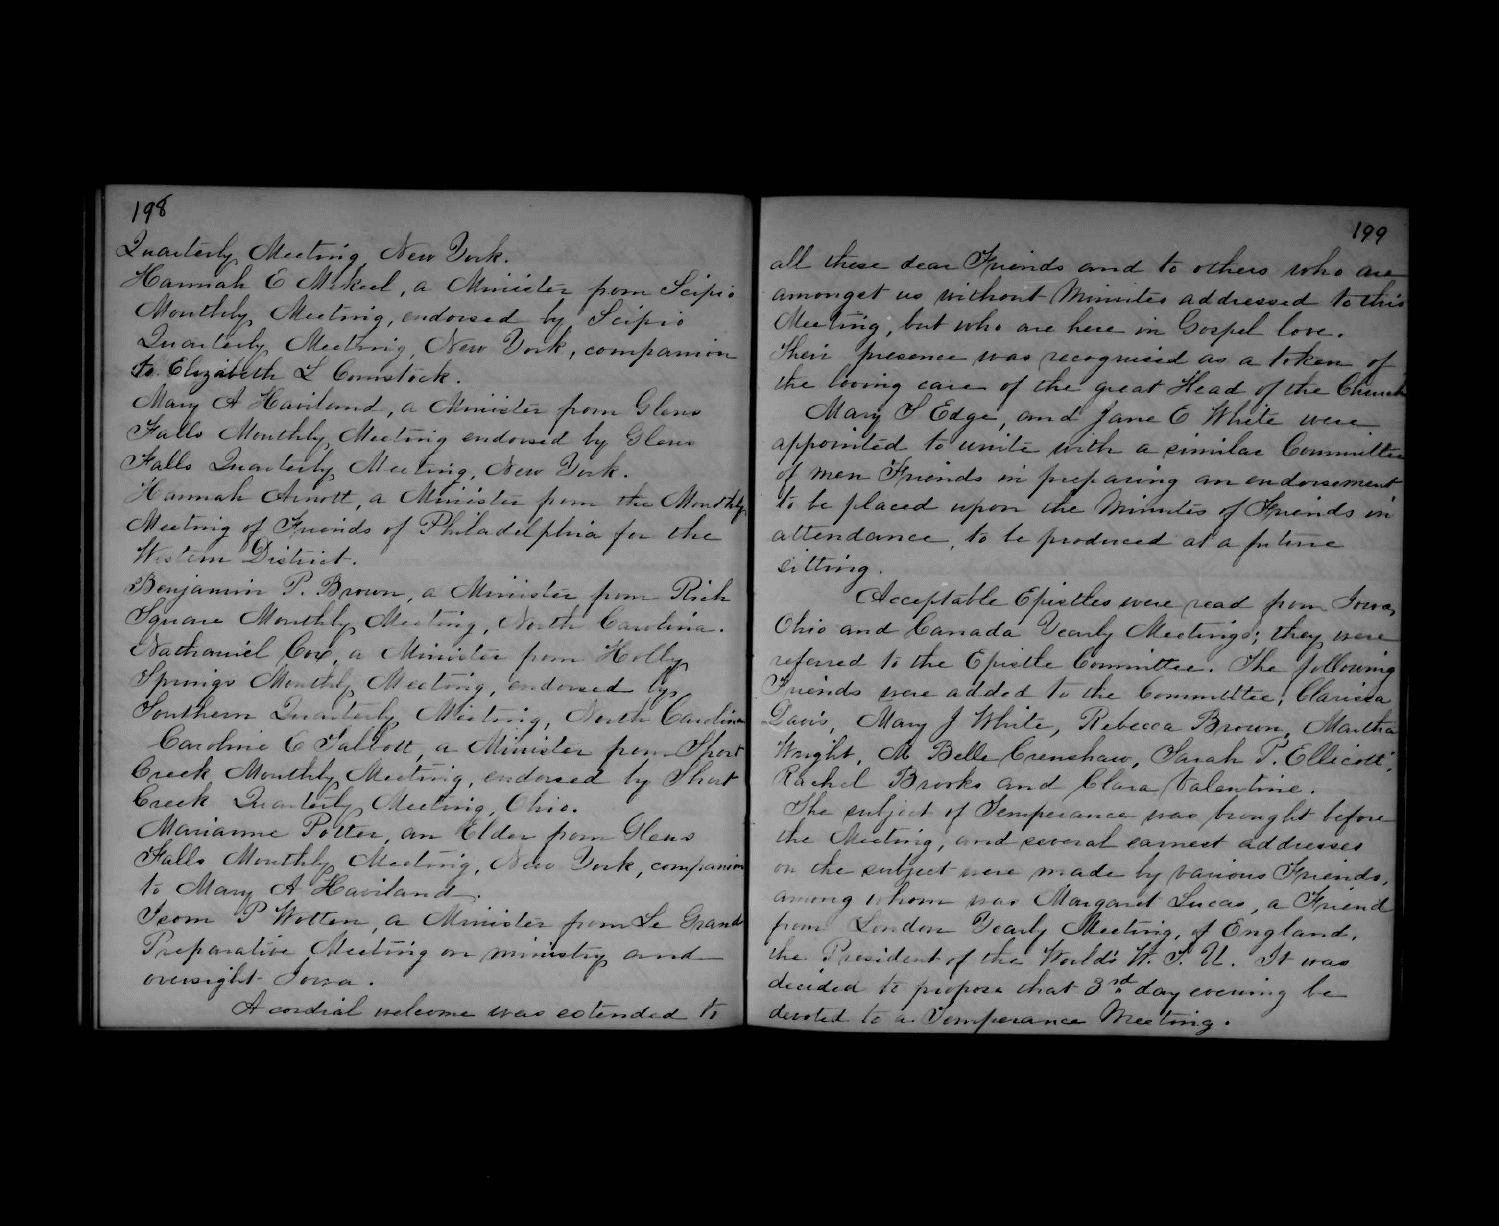 198
Quarterly Meeting, New York.
Hannah E Mekeel, a Minister from Scipio
Monthly Meeting, endorsed by Scipio
Quarterly Meeting, New York, companion
to Elizabeth L Comstock.
Mary A Haviland, a Minister from Glens
Falls Monthly Meeting endorsed by Glens
Falls Quarterly Meeting, New York.
Hannah Arnott, a Minister from the Monthly
Meeting of Friends of Philadelphia for the
Western District.
Benjamin P. Brown, a Minister from Rich
Square Monthly Meeting, North Carolina.
Nathaniel Cox, a Minister from Holly
Springs Monthly Meeting, endorsed by
Southern Quarterly Meeting, North Carolina
Caroline E Talbott, a Minister from Short
Creek Monthly Meeting, endorsed by Short
Creek Quarterly Meeting, Ohio.
Marianne Potter, an Elder from Glens
Falls Monthly Meeting, New York, companion
to Mary A Haviland.
Isom P Wotten, a Minister from Le Grand
Preparative Meeting on ministry and
oversight Iowa.
A cordial welcome was extended to
199
all these dear Friends and to others who are
amongst us without Minutes addressed to this
Meeting, but who are here in Gospel love.
Their presence was recognised as a token of
the loving care of the great Head of the Church
Mary S Edge, and Jane E White were
appointed to unite with a similar Committee
of men Friends in preparing an endorsement
to be placed upon the Minutes of Friends in
attendance, to be produced at a future
sitting.
Acceptable Epistles were read from Iowa,
Ohio and Canada Yearly Meetings; they were
referred to the Epistle Committee. The following
Friends were added to the Committee; Clarissa
Davis, Mary J White, Rebecca Brown, Martha
Wright, M Belle Crenshaw, Sarah T. Ellicott,
Rachel Brooks and Clara Valentine.
The subject of Temperance was brought before
the Meeting, and several earnest addresses
on the subject were made by various Friends,
among whom was Margaret Lucas, a Friend
from London Yearly Meeting, of England,
the President of the World's W. T. U. It was
decided to propose that 3rd day evening be
devoted to a Temperance Meeting.